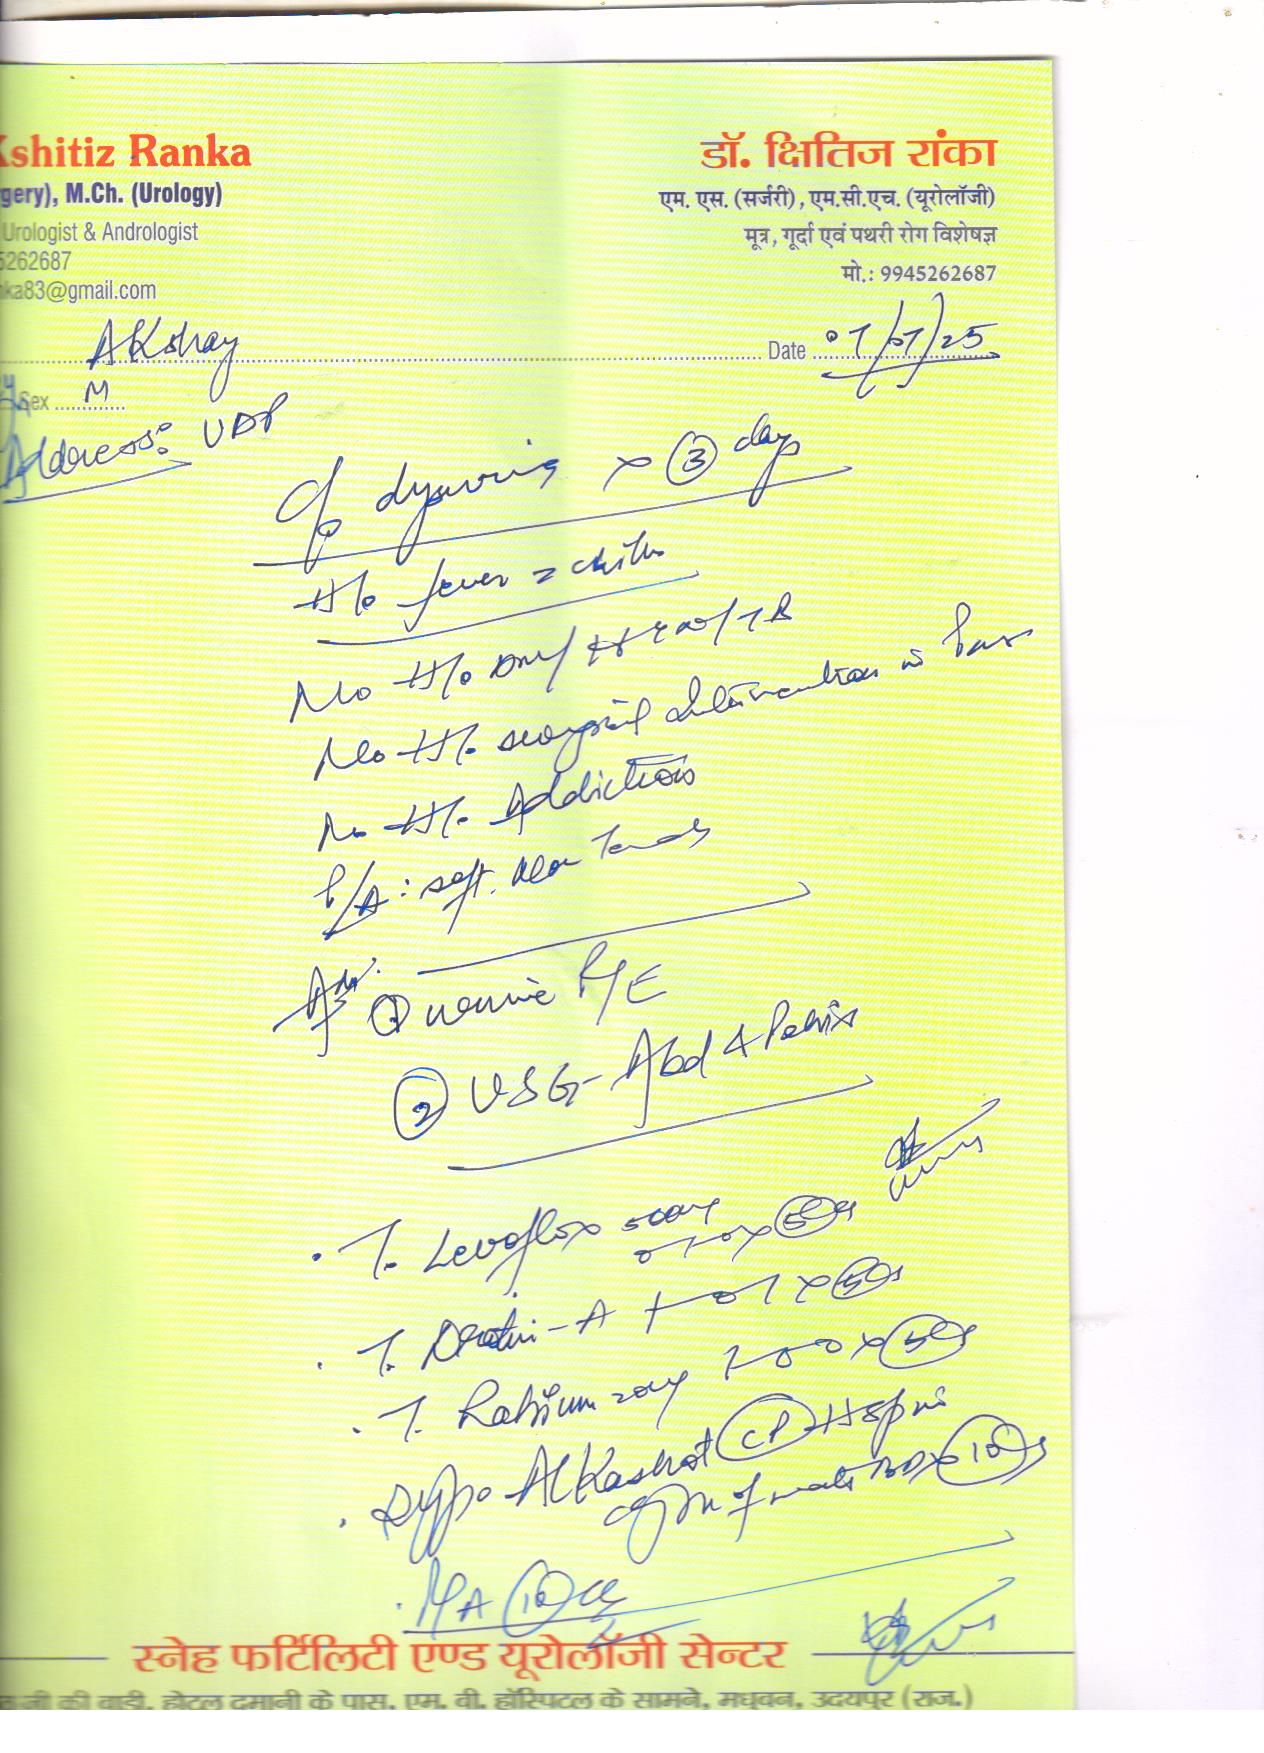 Kshitiz Ranka
gery), M.Ch. (Urology)
Urologist & Andrologist
5262687
nka83@gmail.com
डॉ. क्षितिज रांका
एम. एस. (सर्जरी), एम.सी.एच. (यूरोलॉजी)
मूत्र, गूर्दा एवं पथरी रोग विशेषज्ञ
मो.: 9945262687
Akshay
Date 07/07/25
Sex M
Address: UDP
C/o dysuria x 3 days
H/o fever c chills
No H/o DM/
No H/o surgical intervention in Past
No H/o Addictions
P/A: soft. Non Tender
Adv. ① urine R/E
② USG- Abd & Pelvis
. T. Levoflox 500mg
0-1-0 x 5d
. T. -A 1-0-1 x 5d
. T. 20mg 1-0-0 x 5d
. Syp. Alkashot
of water BD x 10d
. 10
स्नेह फर्टिलिटी एण्ड यूरोलॉजी सेन्टर
जी की वाडी, होटल दमानी के पास, एम. वी. हॉस्पिटल के सामने, मधुवन, उदयपुर (राज.)